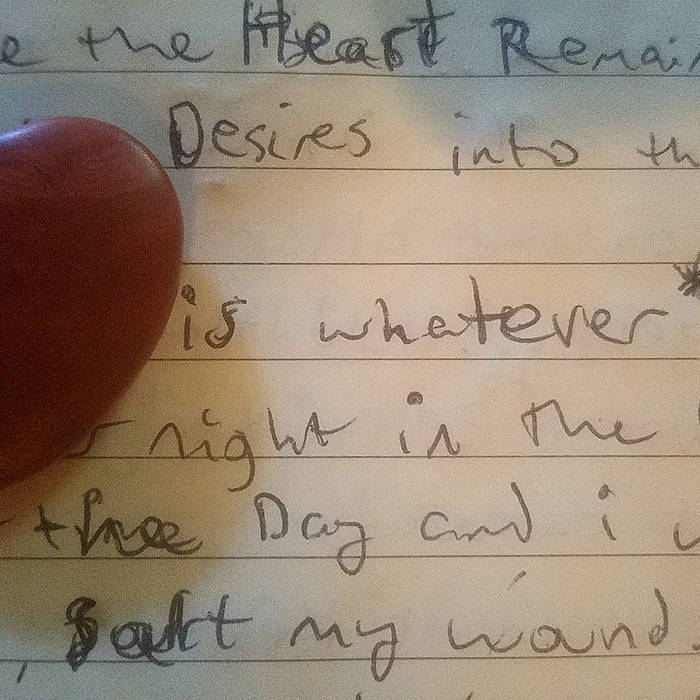 e the Heart Remain
Desires into th
is whatever*
night in the
three Day and i
, Salt my wound.